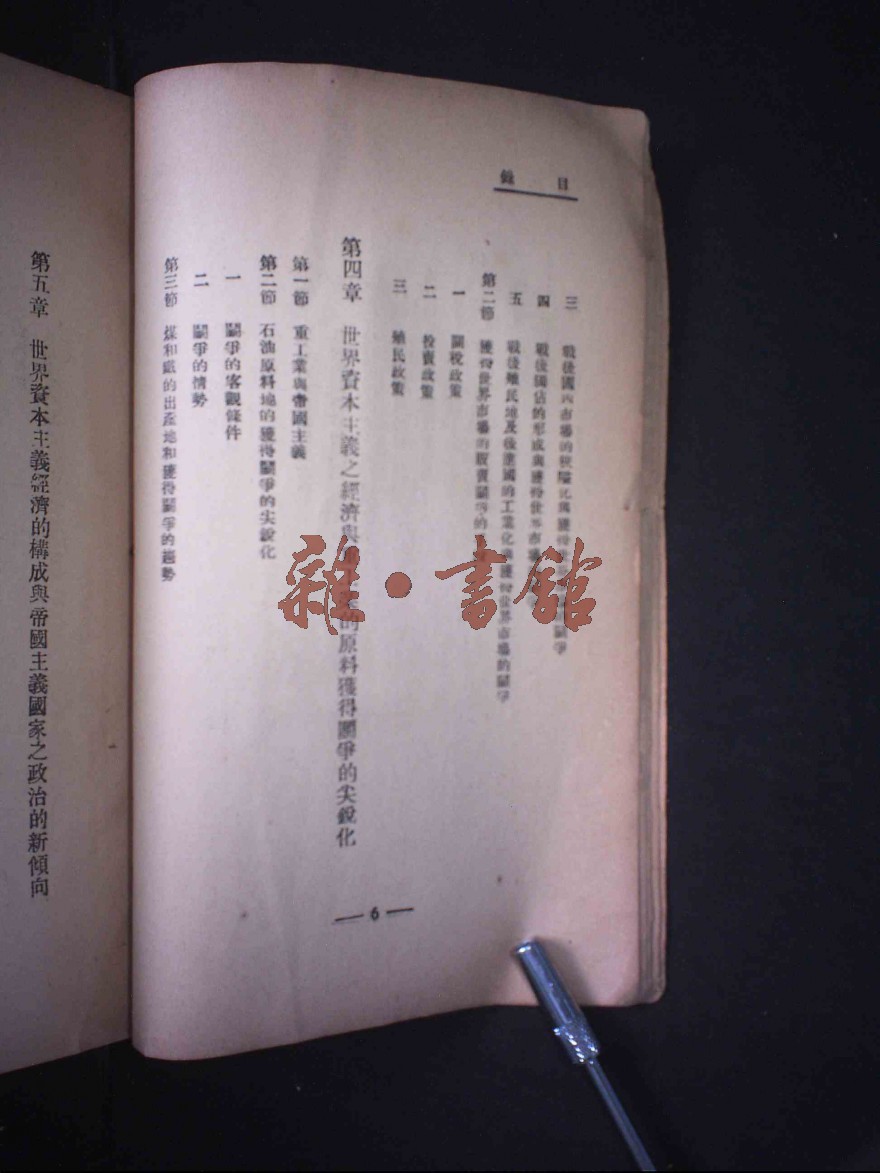 目錄
三 戰後國內市場的狹隘化與獲得世界市場的鬪爭
四 戰後獨佔的形成與獲得世界市場
五 戰後殖民地及後進國的工業化與獲得世界市場的鬪爭
第二節 獲得世界市場的販賣鬪爭的
一 關稅政策
二 投賣政策
三 殖民政策
第四章 世界資本主義之經濟與的原料獲得鬪爭的尖銳化
第一節 重工業與帝國主義
第二節 石油原料地的獲得鬪爭的尖銳化
一 鬪爭的客觀條件
二 鬪爭的情勢
第三節 煤和鐵的出產地和獲得鬪爭的趨勢
— 6 —
第五章 世界資本主義經濟的構成與帝國主義國家之政治的新傾向
雜·書館